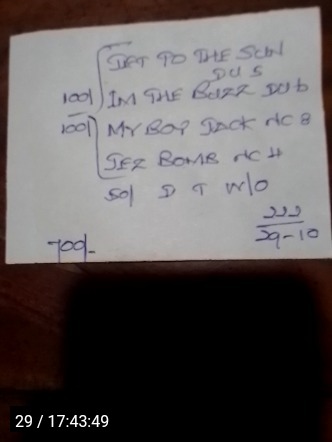 JET TO THE SUN
DU 5
100/ IM THE BUZZ DU 6
100/ MY BOY JACK NC 8
JEZ BOMB NC 4
50/ D T W/O
222
29-10
700/-
29 / 17:43:49